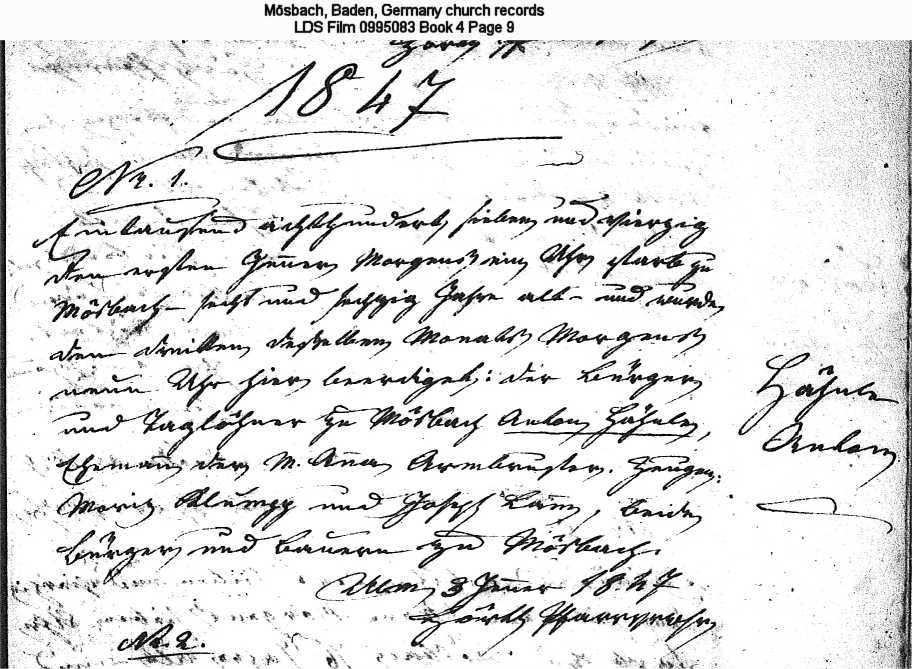 Mösbach, Baden, Germany church records
LDS Film 0995083 Book 4 Page 9
1847
Nr. 1.
Eintausend achthundert sieben und vierzig
den ersten Jenner Morgens ein Uhr starb zu
Mösbach – sechs und sechzig Jahre alt – und wurde
den dritten desselben Monats Morgens
neun Uhr hier beerdiget: der Bürger
und Taglöhner zu Mösbach Anton Hähnle,
Ehemann der M. Anna Armbruster. Zeugen:
Moriz Klumpp und Joseph, beide
Bürger und Bauern zu Mösbach.
Ulm 3 Jenner 1847
Nr. 2.
Hähnle
Anton